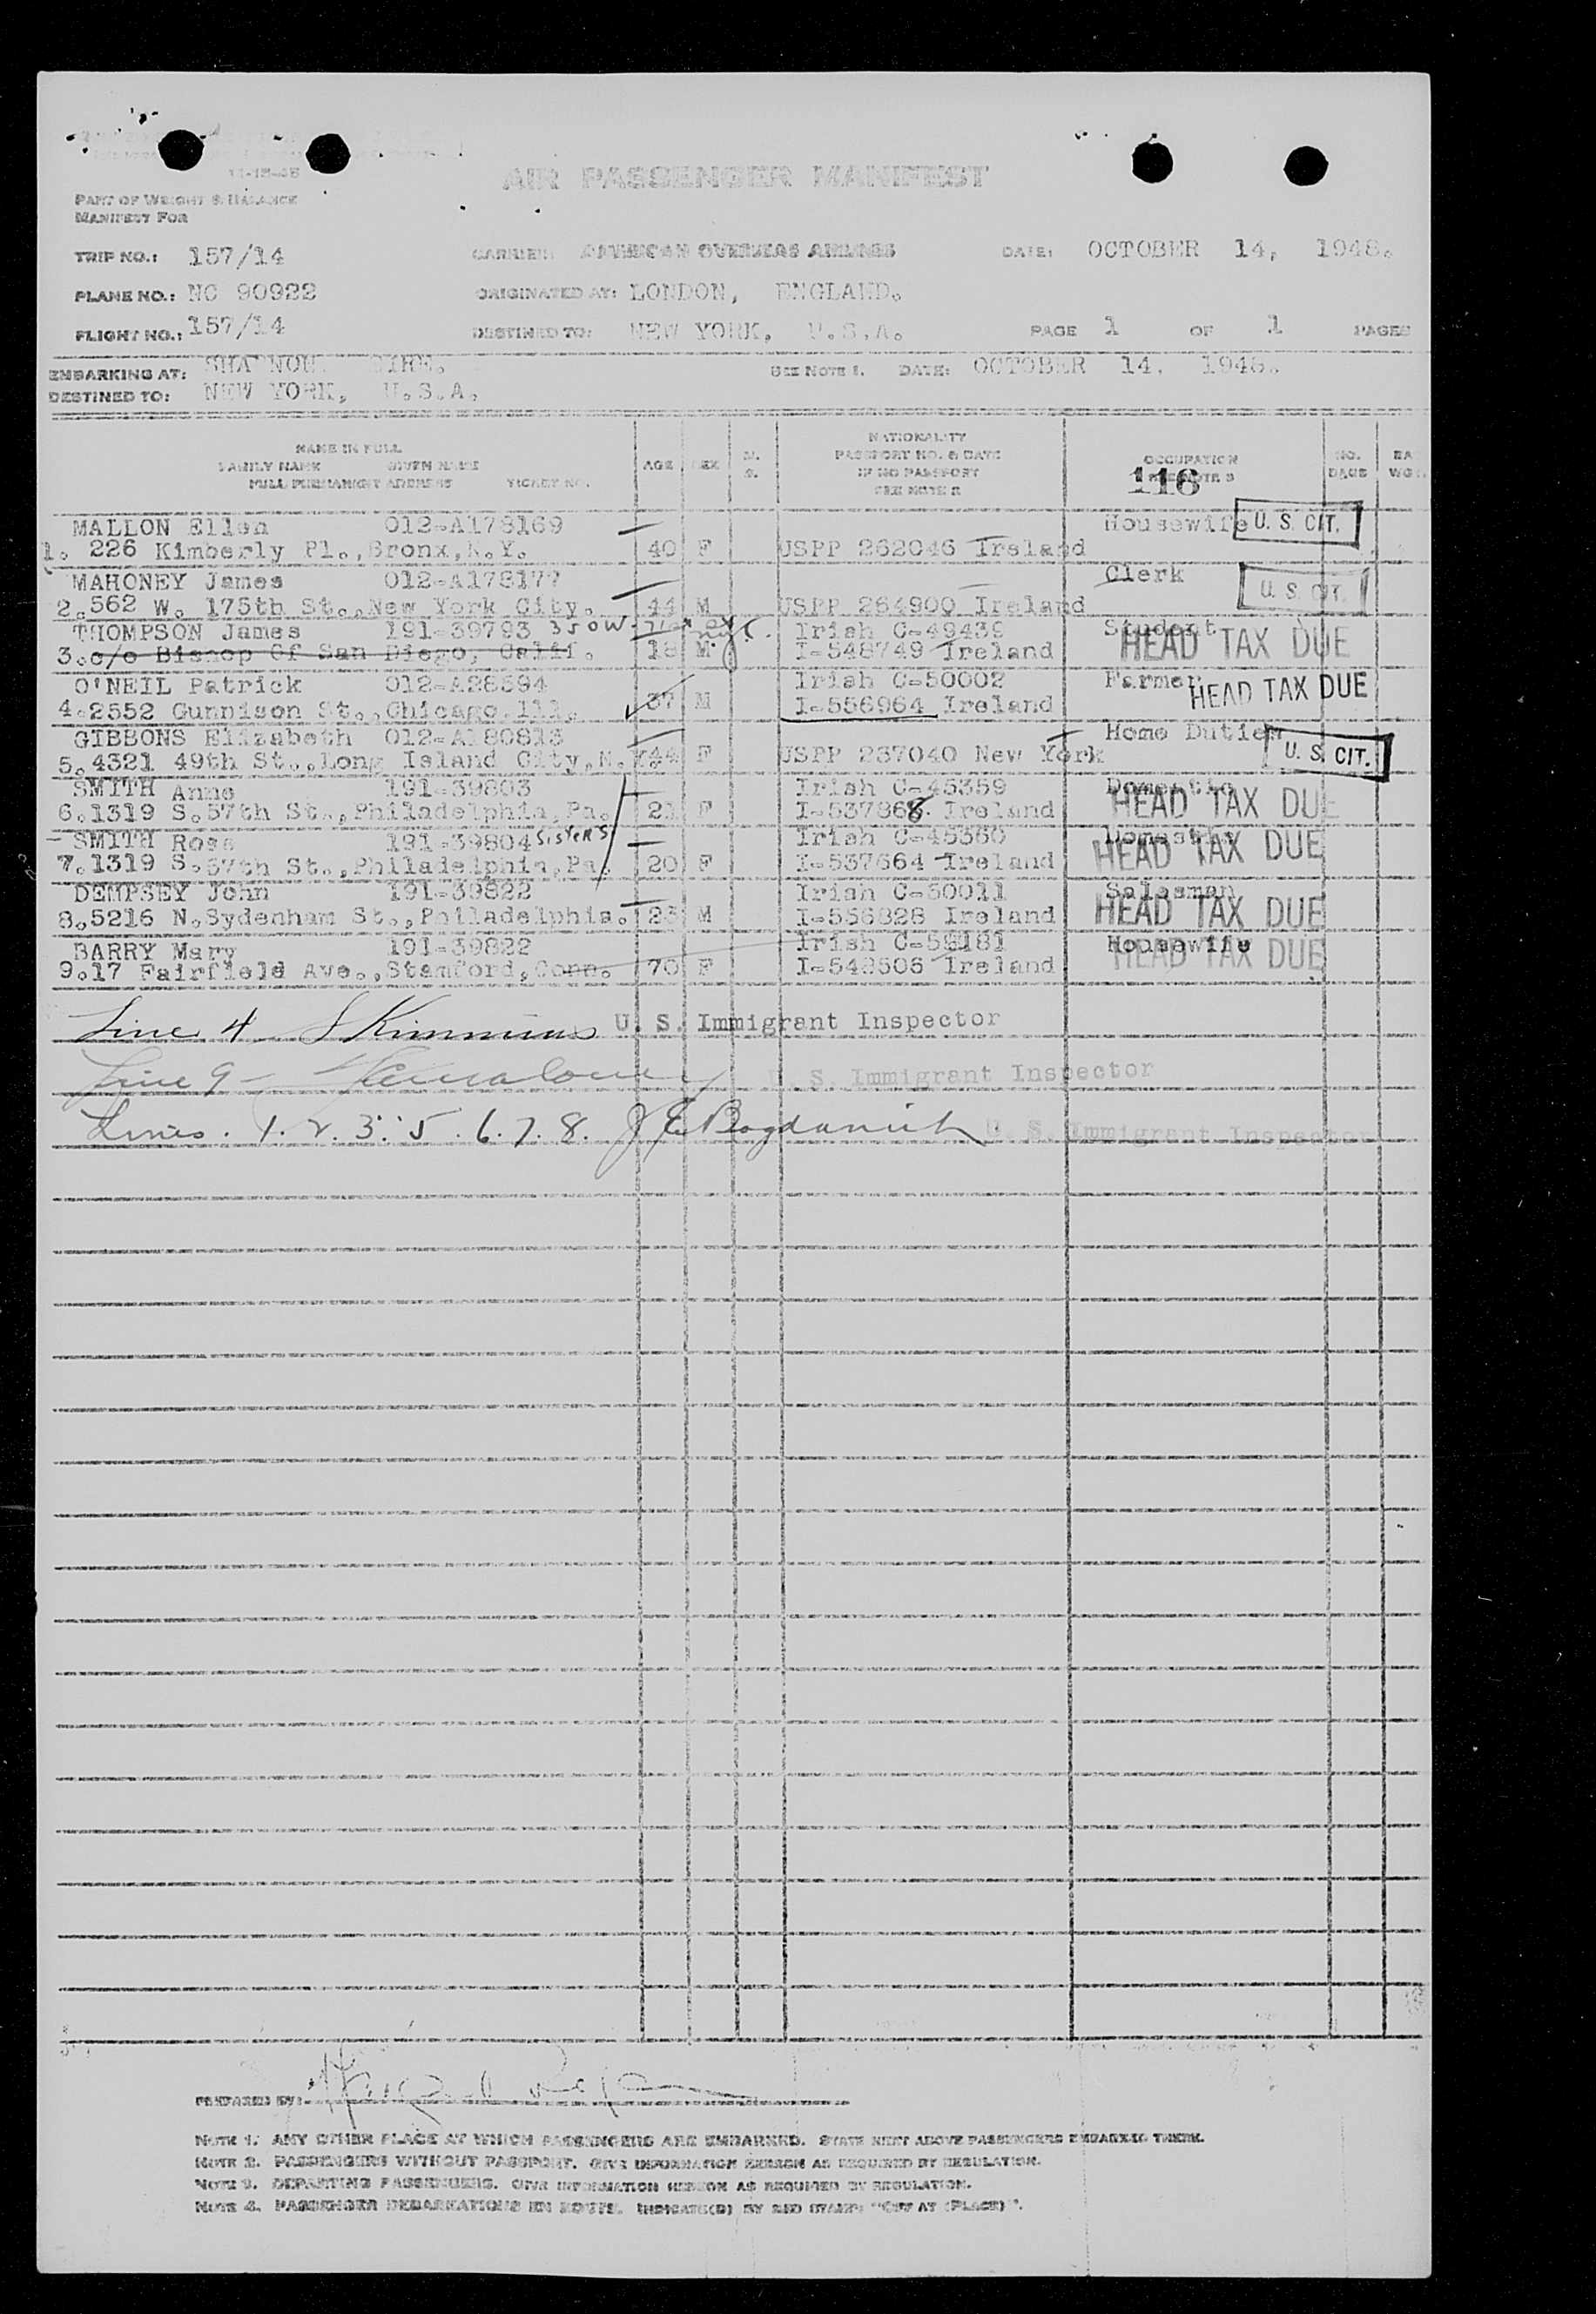 11-15-48
AIR PASSENGER MANIFEST
PART OF WEIGHT & BALANCE
MANIFEST FOR
TRIP NO.: 157/14 CARRIER: AMERICAN OVERSEAS AIRLINES DATE: OCTOBER 14, 1948.
PLANE NO.: NC 90922 ORIGINATED AT: LONDON, ENGLAND.
FLIGHT NO.: 157/14 DESTINED TO: NEW YORK, U.S.A. PAGE 1 OF 1 PAGES
EMBARKING AT: SHANNON, EIRE. SEE NOTE 1. DATE: OCTOBER 14, 1948.
DESTINED TO: NEW YORK, U.S.A.
NAME IN FULL
FAMILY NAME GIVEN NAME
FULL PERMANENT ADDRESS TICKET NO.
AGE SEX M. S.
NATIONALITY
PASSPORT NO. & DATE
IF NO PASSPORT
SEE NOTE 2
OCCUPATION
SEE NOTE 3
116
NO. BAGS BAG WGT.
MALLON Ellen 012-A178169 Housewife U. S. CIT.
1. 226 Kimberly Pl.,Bronx,N.Y. 40 F USPP 262046 Ireland
MAHONEY James 012-A178177 Clerk U. S. CIT.
2.562 W. 175th St.,New York City. 44 M USPP 264900 Ireland
THOMPSON James 191-39793 350 W. 71st NYC. Irish C-49439 Student
3.c/o Bishop Of San Diego, Calif. 18 M I-548749 Ireland HEAD TAX DUE
O'NEIL Patrick 012-A28594 Irish C-50002 Farmer
4.2552 Gunnison St.,Chicago.Ill. 37 M I-556964 Ireland HEAD TAX DUE
GIBBONS Elizabeth 012-A180813 Home Duties U. S. CIT.
5.4321 49th St.,Long Island City,N.Y. 44 F USPP 237040 New York
SMITH Anne 191-39803 Irish C-45359 Domestic
6.1319 S.57th St.,Philadelphia,Pa. 21 F I-537868. Ireland HEAD TAX DUE
SMITH Rose 191-39804 SISTERS Irish C-45360 Domestic
7.1319 S.57th St.,Philadelphia,Pa. 20 F I-537664 Ireland HEAD TAX DUE
DEMPSEY John 191-39822 Irish C-50011 Salesman
8.5216 N.Sydenham St.,Philadelphia. 23 M I-556828 Ireland HEAD TAX DUE
BARRY Mary 191-39822 Irish C-50181 Housewife
9.17 Fairfield Ave.,Stamford,Conn. 70 F I-548506 Ireland HEAD TAX DUE
Line 4 U. S. Immigrant Inspector
Line 9 - U. S. Immigrant Inspector
Lines. 1. 2. 3. 5. 6. 7. 8. J E Bogdanich U. S. Immigrant Inspector
PREPARED BY:
NOTE 1. ANY OTHER PLACE AT WHICH PASSENGERS ARE EMBARKED. STATE NEXT ABOVE PASSENGERS EMBARKED THERE.
NOTE 2. PASSENGERS WITHOUT PASSPORT. GIVE INFORMATION HEREON AS REQUIRED BY REGULATION.
NOTE 3. DEPARTING PASSENGERS. GIVE INFORMATION HEREON AS REQUIRED BY REGULATION.
NOTE 4. PASSENGER DEBARKATIONS EN ROUTE. INDICATE(D) BY RED STAMP: "OFF AT (PLACE)".